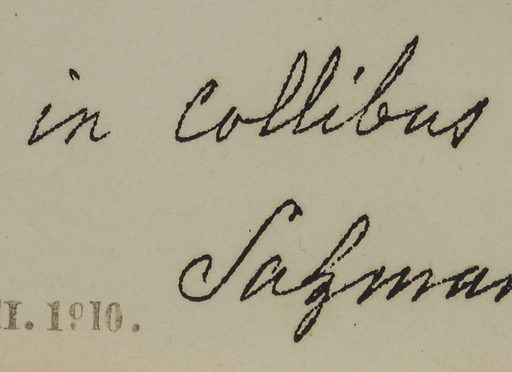 in collibus
Sazman
II. 1910.